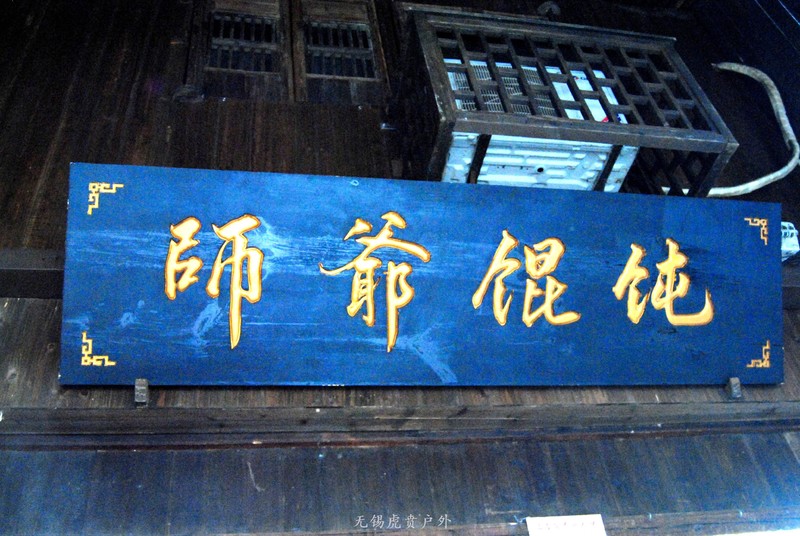 師爺馄饨
无锡虎贲户外